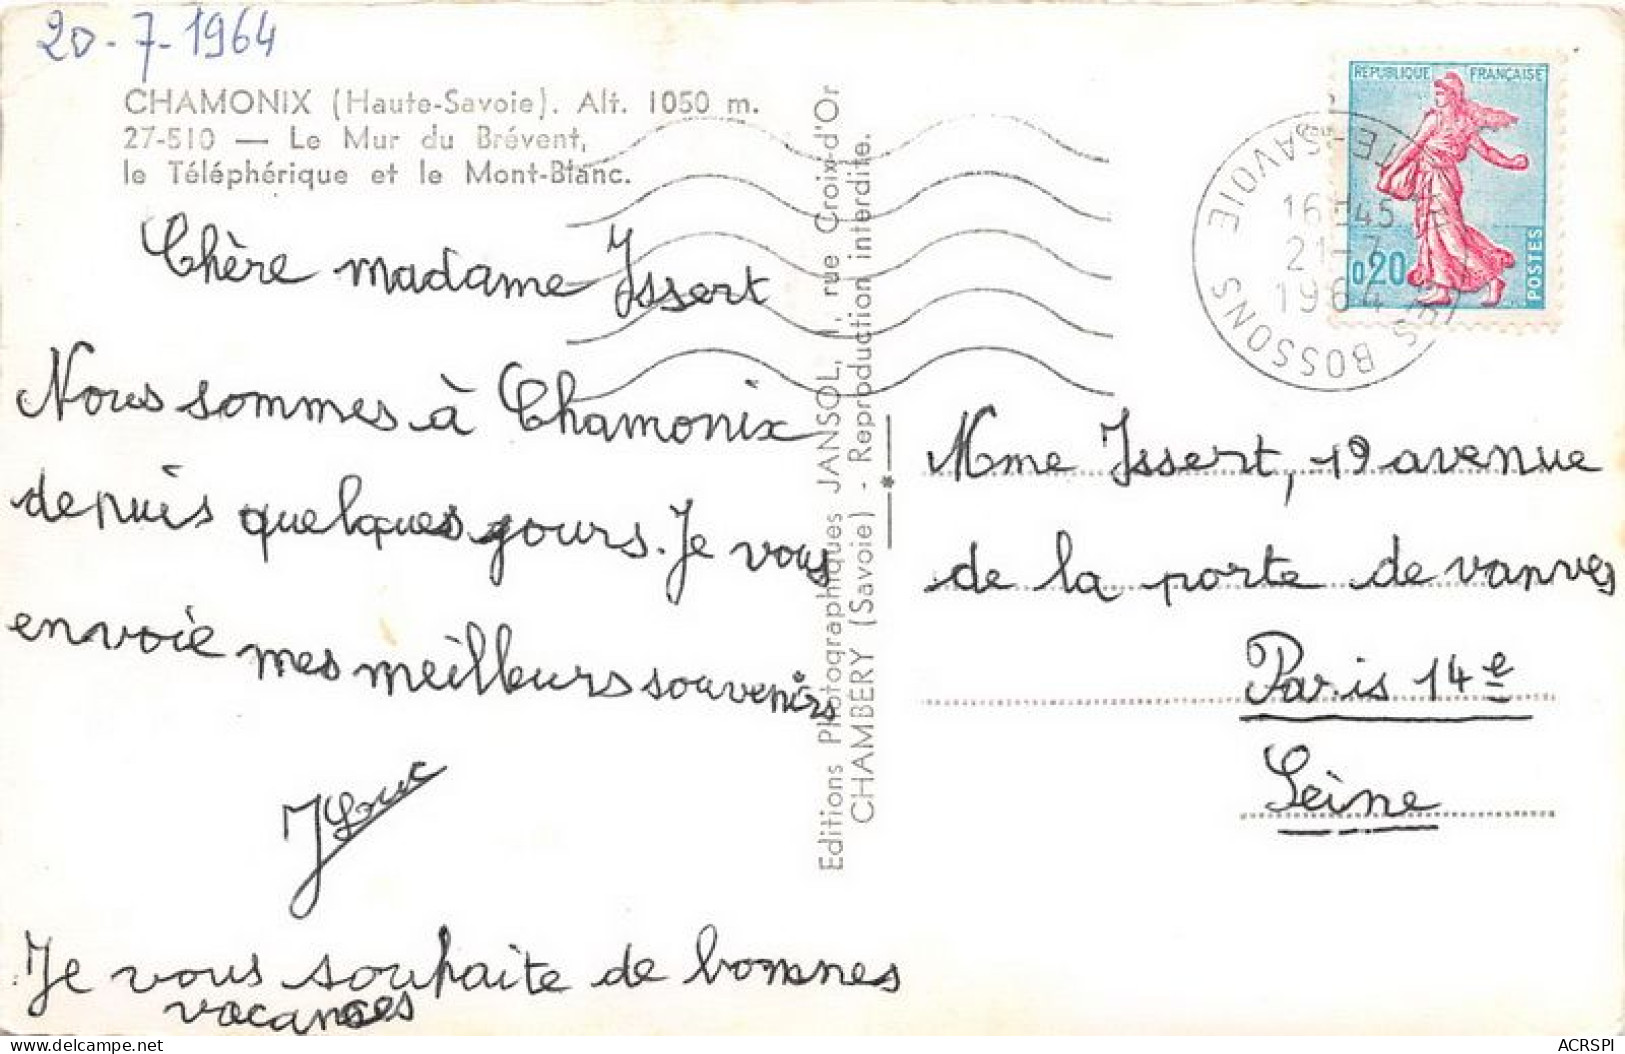 20-7-1964
CHAMONIX (Haute-Savoie). Alt. 1050 m.
27-510 — Le Mur du Brévent,
le Téléphérique et le Mont-Blanc.
Chère madame Issert
Nous sommes à Chamonix
depuis quelques jours. Je vous
envoie mes meilleurs souvenirs
Je vous souhaite de bonnes
vacances
Editions Photographiques JANSOL, 1, rue Croix-d'Or
CHAMBÉRY (Savoie) - Reproduction interdite.
REPUBLIQUE FRANÇAISE
0,20
POSTES
LES BOSSONS
HTE-SAVOIE
16H45
21-7
1964
Mme Issert, 19 avenue
de la porte de vanves
Paris 14e
Seine
delcampe.net
ACRSPI